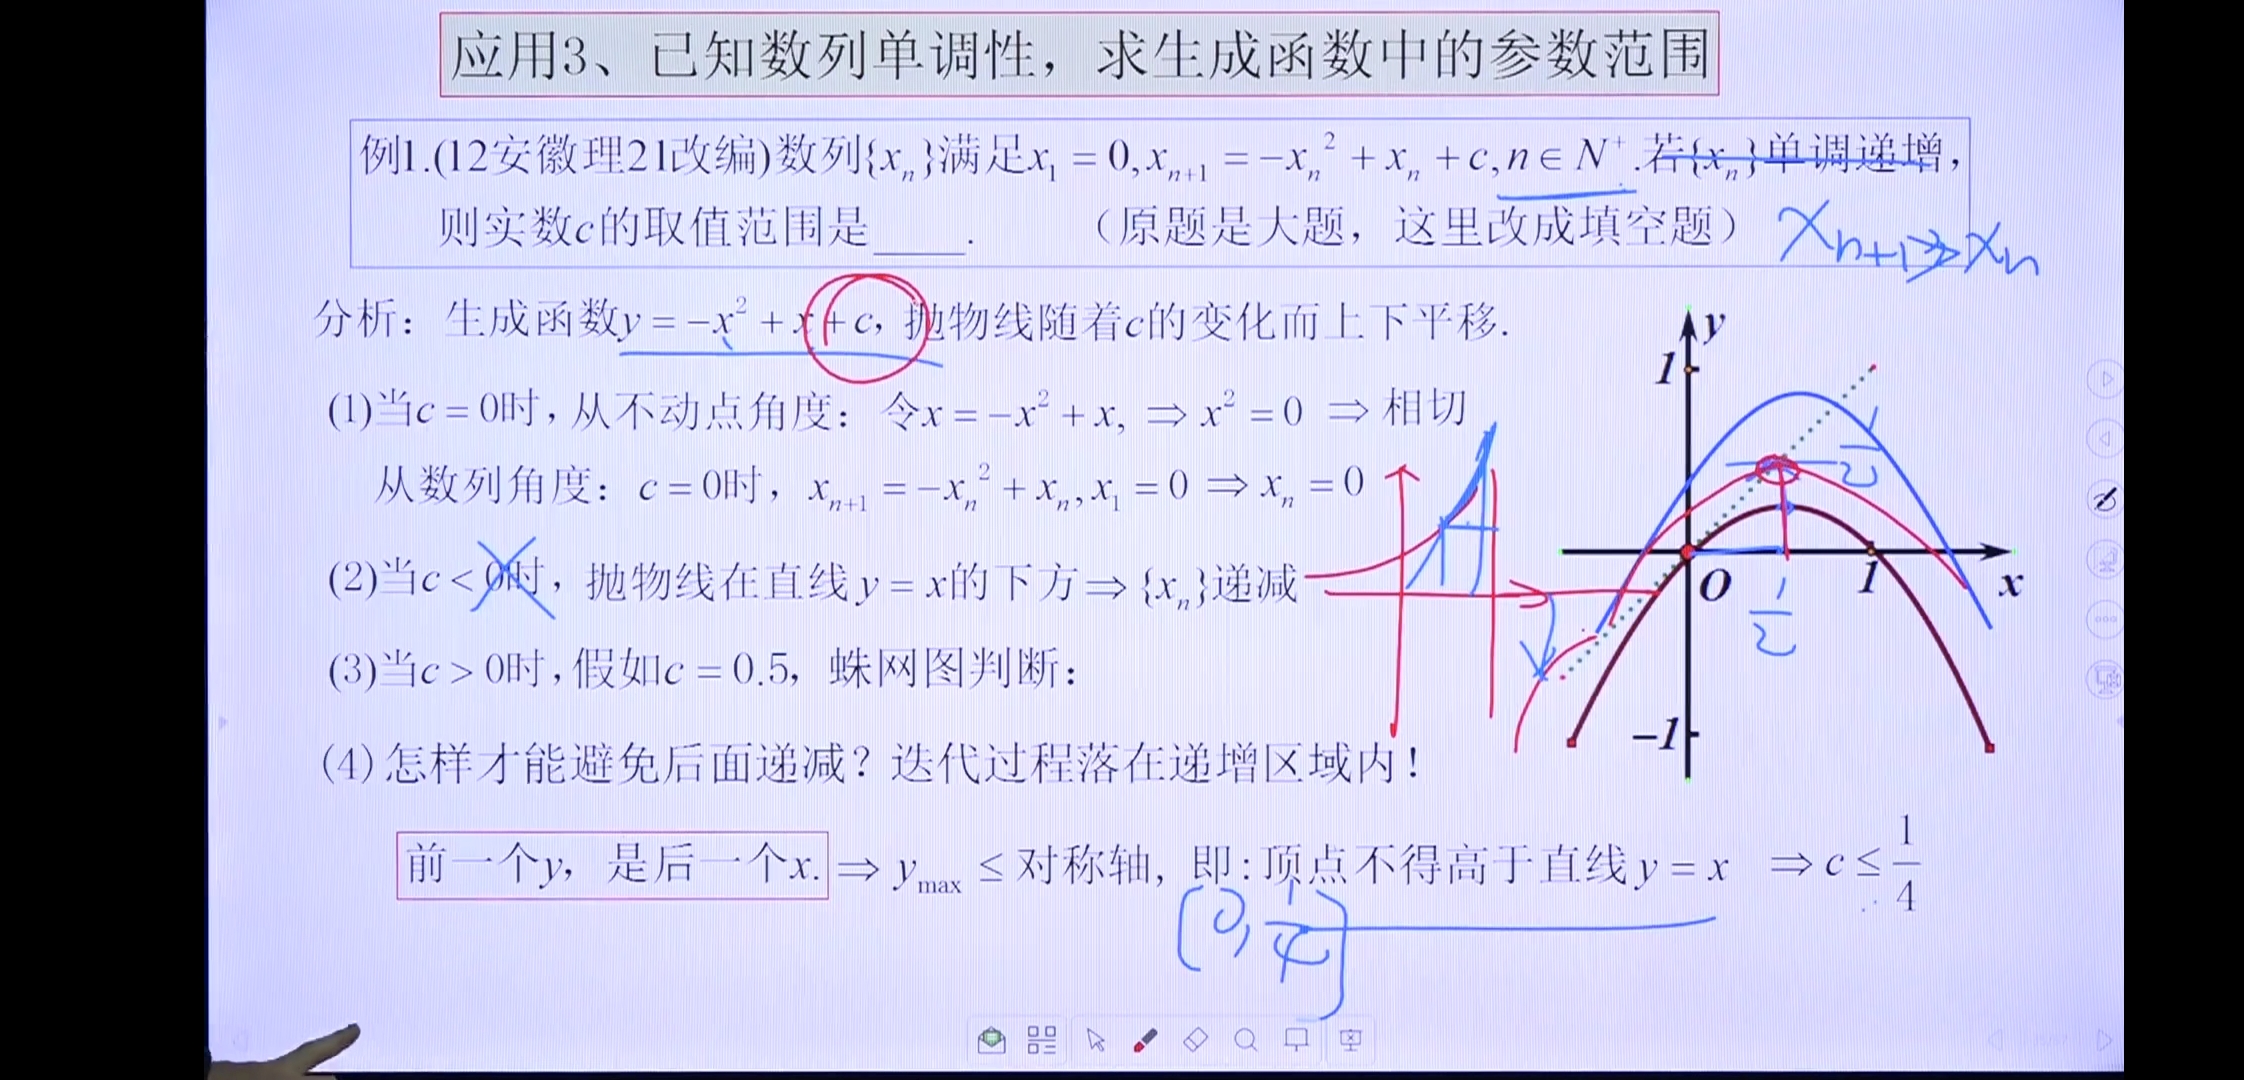 应用3、已知数列单调性，求生成函数中的参数范围
例1.(12安徽理21改编)数列{xₙ}满足x₁ = 0, xₙ₊₁ = −xₙ² + xₙ + c, n ∈ N⁺.若{xₙ}单调递增，
则实数c的取值范围是____. （原题是大题，这里改成填空题）
xₙ₊₁ > xₙ
分析：生成函数y = −x² + x + c，抛物线随着c的变化而上下平移.
(1)当c = 0时，从不动点角度：令x = −x² + x, ⇒ x² = 0 ⇒ 相切
从数列角度：c = 0时，xₙ₊₁ = −xₙ² + xₙ, x₁ = 0 ⇒ xₙ = 0
(2)当c < 0时，抛物线在直线y = x的下方⇒{xₙ}递减
(3)当c > 0时，假如c = 0.5，蛛网图判断：
(4)怎样才能避免后面递减？迭代过程落在递增区域内！
前一个y，是后一个x. ⇒ y_max ≤ 对称轴，即：顶点不得高于直线y = x ⇒ c ≤ 1/4
(0, 1/4]
y
1
1/2
O
1
x
1/2
−1